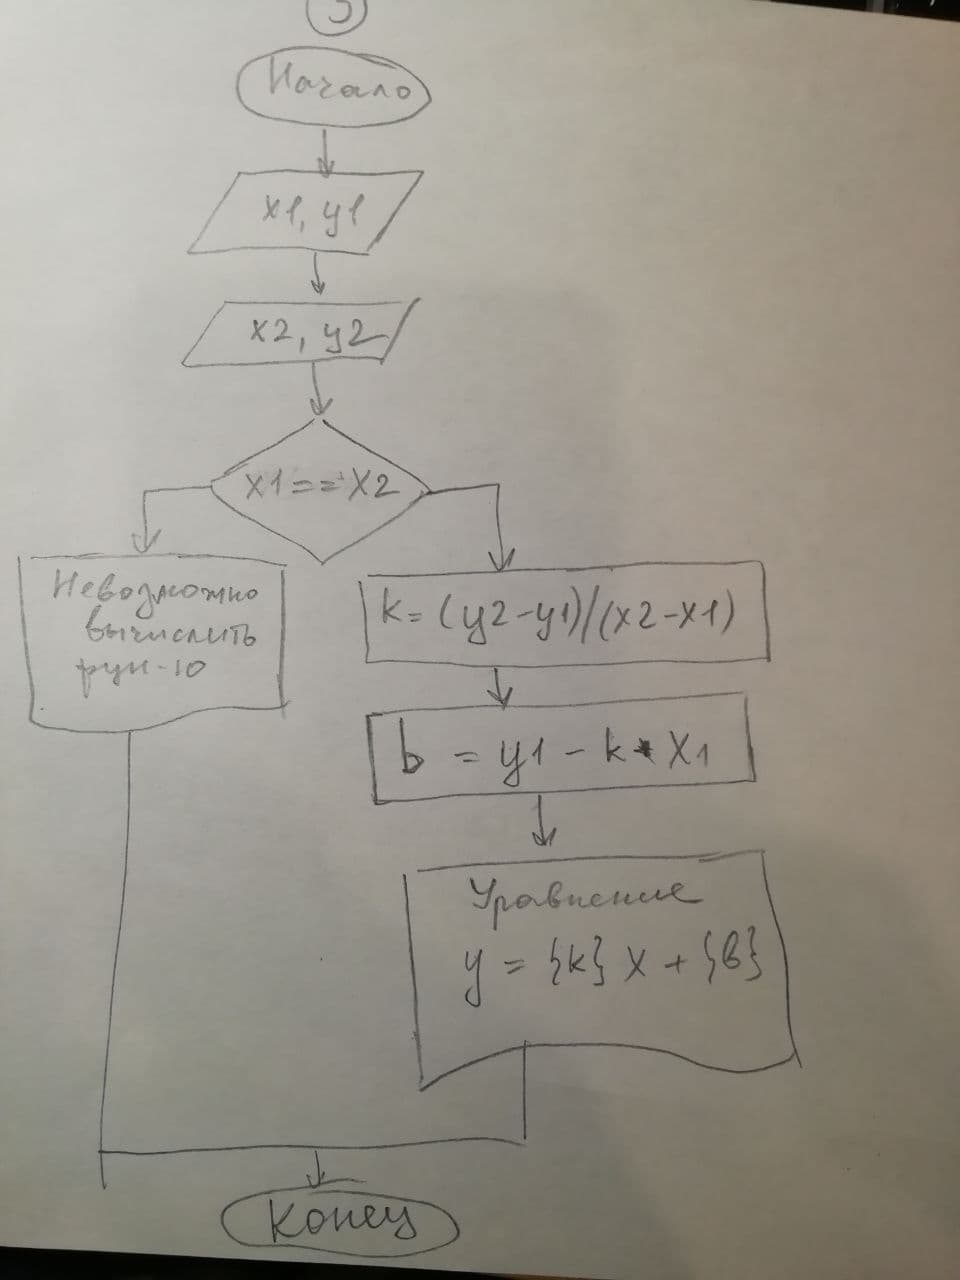 3
Начало
x1, y1
x2, y2
x1==x2
Невозможно
вычислить
фун-ю
k=(y2-y1)/(x2-x1)
b = y1 - k * x1
Уравнение
y = {k} x + {b}
Конец